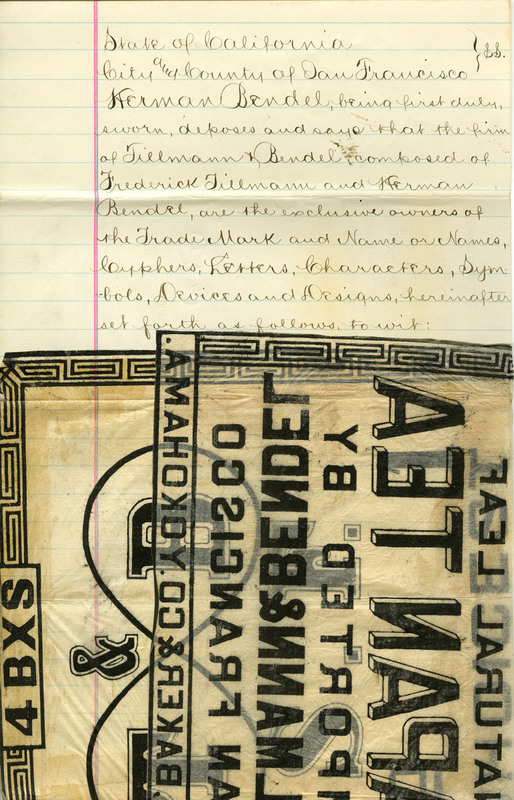 State of California } SS.
City and County of San Francisco
Herman Bendel, being first duly,
sworn, deposes and says that the firm
of Tillmann & Bendel, composed of
Frederick Tillmann and Herman
Bendel, are the exclusive owners of
the Trade Mark and Name or Names,
Cyphers, Letters, Characters, Sym-
bols, Devices and Designs, hereinafter
set forth as follows, to wit:
4 BXS
&
BAKER & CO. YOKOHAMA.
AN FRANCISCO
LMANN & BENDEL
MPORTED BY
PAN TEA
NATURAL LEAF